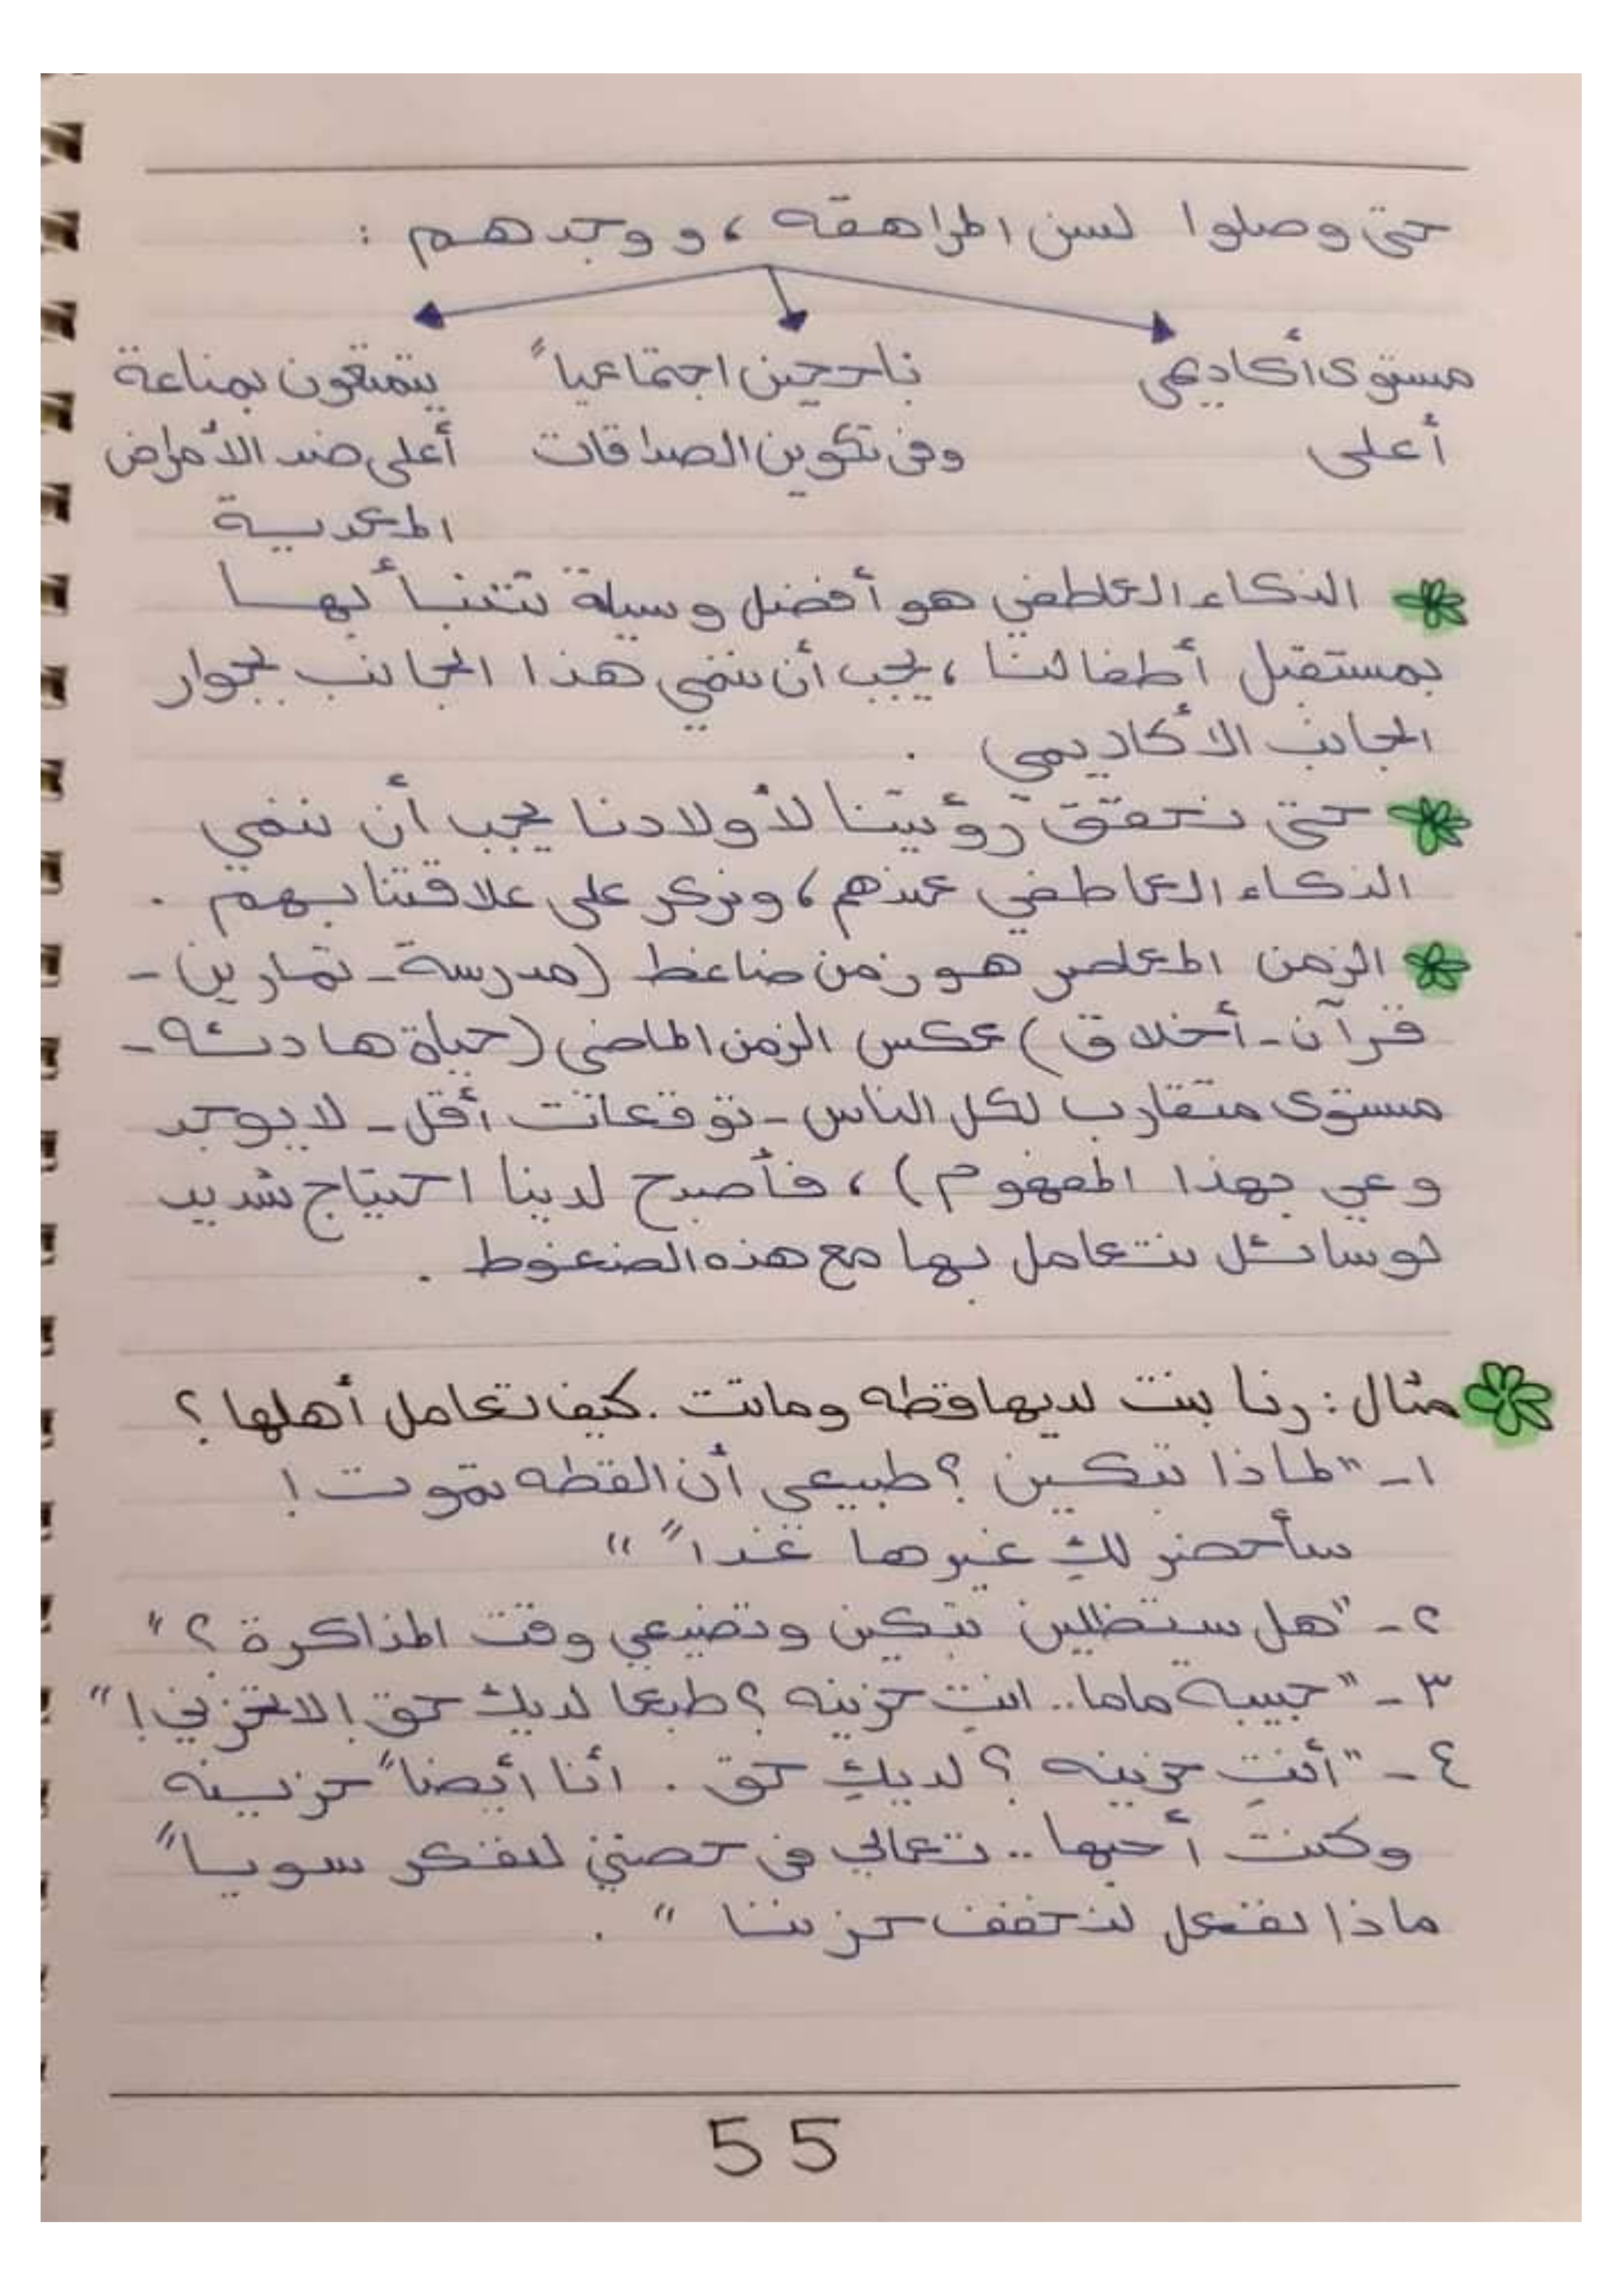 حتى وصلوا لسن المراهقه ، ووجدهم :
مستوى أكاديمي    ناجحين اجتماعياً    يتمتعون بمناعة
أعلى    وفى تكوين الصداقات    أعلى ضد الأمراض
المعدية
الذكاء العاطفي هو أفضل وسيلة نتنبأ بها
بمستقبل أطفالنا ، يجب أن ننمي هذا الجانب بجوار
الجانب الأكاديمي .
حتى نحقق رؤيتنا لأولادنا يجب أن ننمي
الذكاء العاطفي عندهم ، ونركز على علاقتنا بهم .
الزمن المعاصر هو زمن ضاغط (مدرسة - تمارين -
قرآن - أخلاق) عكس الزمن الماضى (حياة هادئه -
مستوى متقارب لكل الناس - توقعات أقل - لا يوجد
وعي بهذا المفهوم) ، فأصبح لدينا احتياج شديد
لوسائل نتعامل بها مع هذه الضغوط .
مثال : رنا بنت لديها قطه وماتت . كيف تعامل أهلها ؟
١ - "لماذا تبكين ؟ طبيعى أن القطه تموت !
سأحضر لكِ غيرها غداً "
٢ - "هل ستظلين تبكين وتضيعي وقت المذاكرة ؟"
٣ - "حبيبة ماما .. انتِ حزينه ؟ طبعا لديك حق ! لا تحزني !"
٤ - "أنتِ حزينه ؟ لديكِ حق . أنا أيضاً حزينه
وكنت أحبها .. تعالي فى حضني لنفكر سوياً
ماذا نفعل لنخفف حزننا " .
55